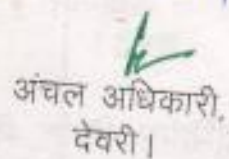 अंचल अधिकारी,
देवरी।